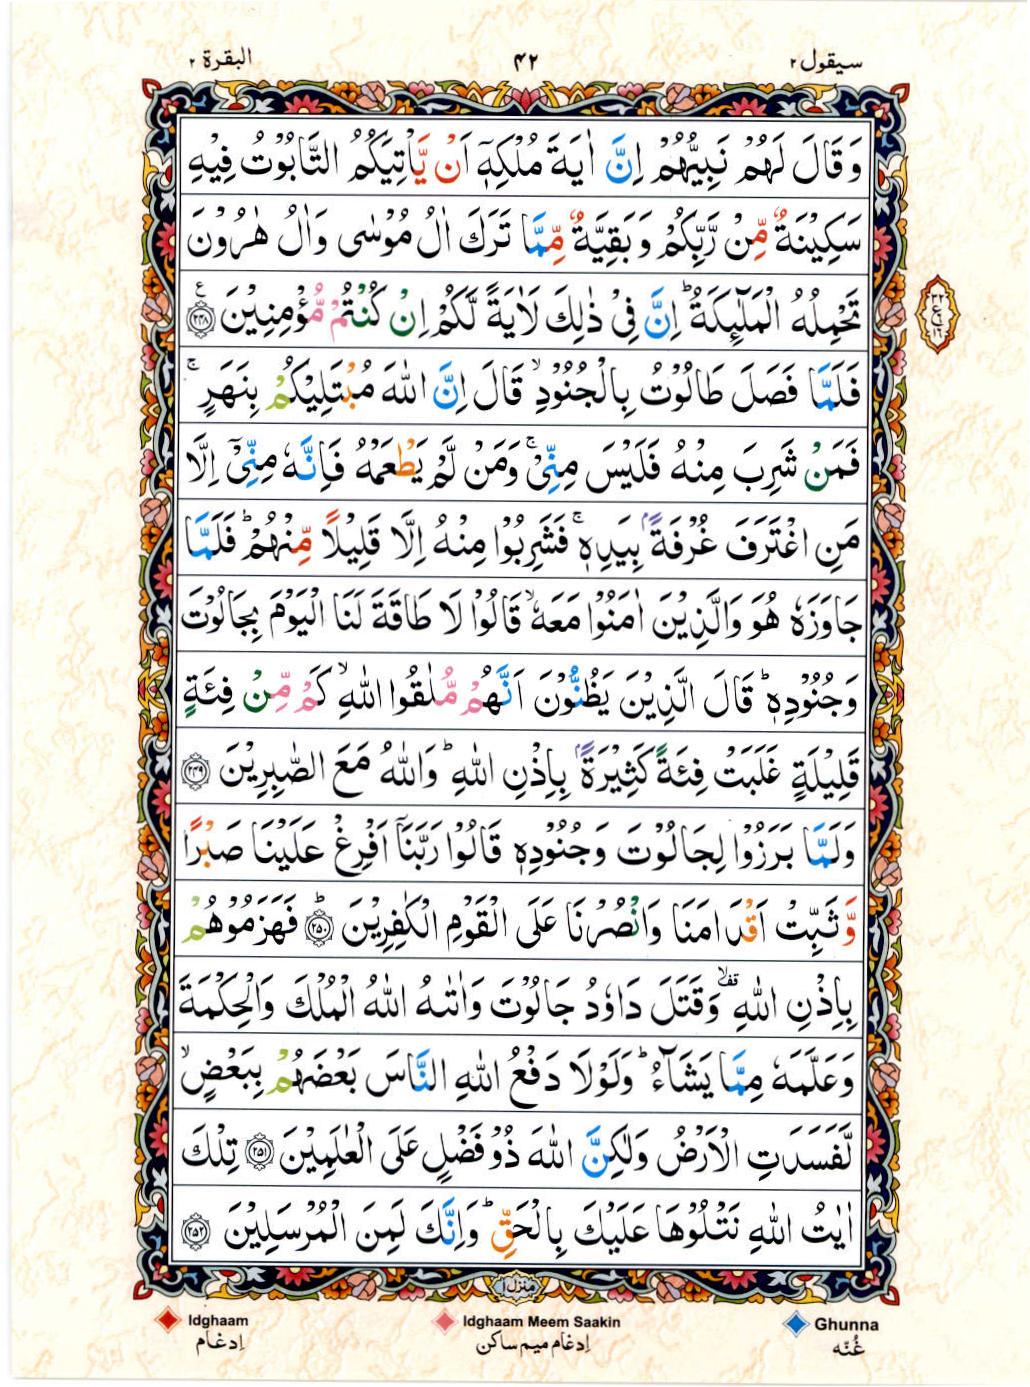 سيقول ٢
٤٢
البقرة ٢
وَقَالَ لَهُمْ نَبِيُّهُمْ اِنَّ اٰيَةَ مُلْكِهٖٓ اَنْ يَّاْتِيَكُمُ التَّابُوْتُ فِيْهِ
سَكِيْنَةٌ مِّنْ رَّبِّكُمْ وَبَقِيَّةٌ مِّمَّا تَرَكَ اٰلُ مُوْسٰى وَاٰلُ هٰرُوْنَ
تَحْمِلُهُ الْمَلٰٓئِكَةُ ؕ اِنَّ فِيْ ذٰلِكَ لَاٰيَةً لَّكُمْ اِنْ كُنْتُمْ مُّؤْمِنِيْنَ ﴿٢٤٨﴾ ع
فَلَمَّا فَصَلَ طَالُوْتُ بِالْجُنُوْدِ ۙ قَالَ اِنَّ اللّٰهَ مُبْتَلِيْكُمْ بِنَهَرٍ ۚ
فَمَنْ شَرِبَ مِنْهُ فَلَيْسَ مِنِّيْ ۚ وَمَنْ لَّمْ يَطْعَمْهُ فَاِنَّهٗ مِنِّيْٓ اِلَّا
مَنِ اغْتَرَفَ غُرْفَةًۢ بِيَدِهٖ ۚ فَشَرِبُوْا مِنْهُ اِلَّا قَلِيْلًا مِّنْهُمْ ؕ فَلَمَّا
جَاوَزَهٗ هُوَ وَالَّذِيْنَ اٰمَنُوْا مَعَهٗ ۙ قَالُوْا لَا طَاقَةَ لَنَا الْيَوْمَ بِجَالُوْتَ
وَجُنُوْدِهٖ ؕ قَالَ الَّذِيْنَ يَظُنُّوْنَ اَنَّهُمْ مُّلٰقُوا اللّٰهِ ۙ كَمْ مِّنْ فِئَةٍ
قَلِيْلَةٍ غَلَبَتْ فِئَةً كَثِيْرَةًۢ بِاِذْنِ اللّٰهِ ؕ وَاللّٰهُ مَعَ الصّٰبِرِيْنَ ﴿٢٤٩﴾
وَلَمَّا بَرَزُوْا لِجَالُوْتَ وَجُنُوْدِهٖ قَالُوْا رَبَّنَآ اَفْرِغْ عَلَيْنَا صَبْرًا
وَّثَبِّتْ اَقْدَامَنَا وَانْصُرْنَا عَلَى الْقَوْمِ الْكٰفِرِيْنَ ﴿٢٥٠﴾ ؕ فَهَزَمُوْهُمْ
بِاِذْنِ اللّٰهِ ۙ قف وَقَتَلَ دَاوٗدُ جَالُوْتَ وَاٰتٰىهُ اللّٰهُ الْمُلْكَ وَالْحِكْمَةَ
وَعَلَّمَهٗ مِمَّا يَشَآءُ ؕ وَلَوْلَا دَفْعُ اللّٰهِ النَّاسَ بَعْضَهُمْ بِبَعْضٍ ۙ
لَّفَسَدَتِ الْاَرْضُ وَلٰكِنَّ اللّٰهَ ذُوْ فَضْلٍ عَلَى الْعٰلَمِيْنَ ﴿٢٥١﴾ تِلْكَ
اٰيٰتُ اللّٰهِ نَتْلُوْهَا عَلَيْكَ بِالْحَقِّ ؕ وَاِنَّكَ لَمِنَ الْمُرْسَلِيْنَ ﴿٢٥٢﴾
منزل ١
Ghunna
غُنّه
Idghaam Meem Saakin
اِدغام ميم ساكن
Idghaam
اِدغام